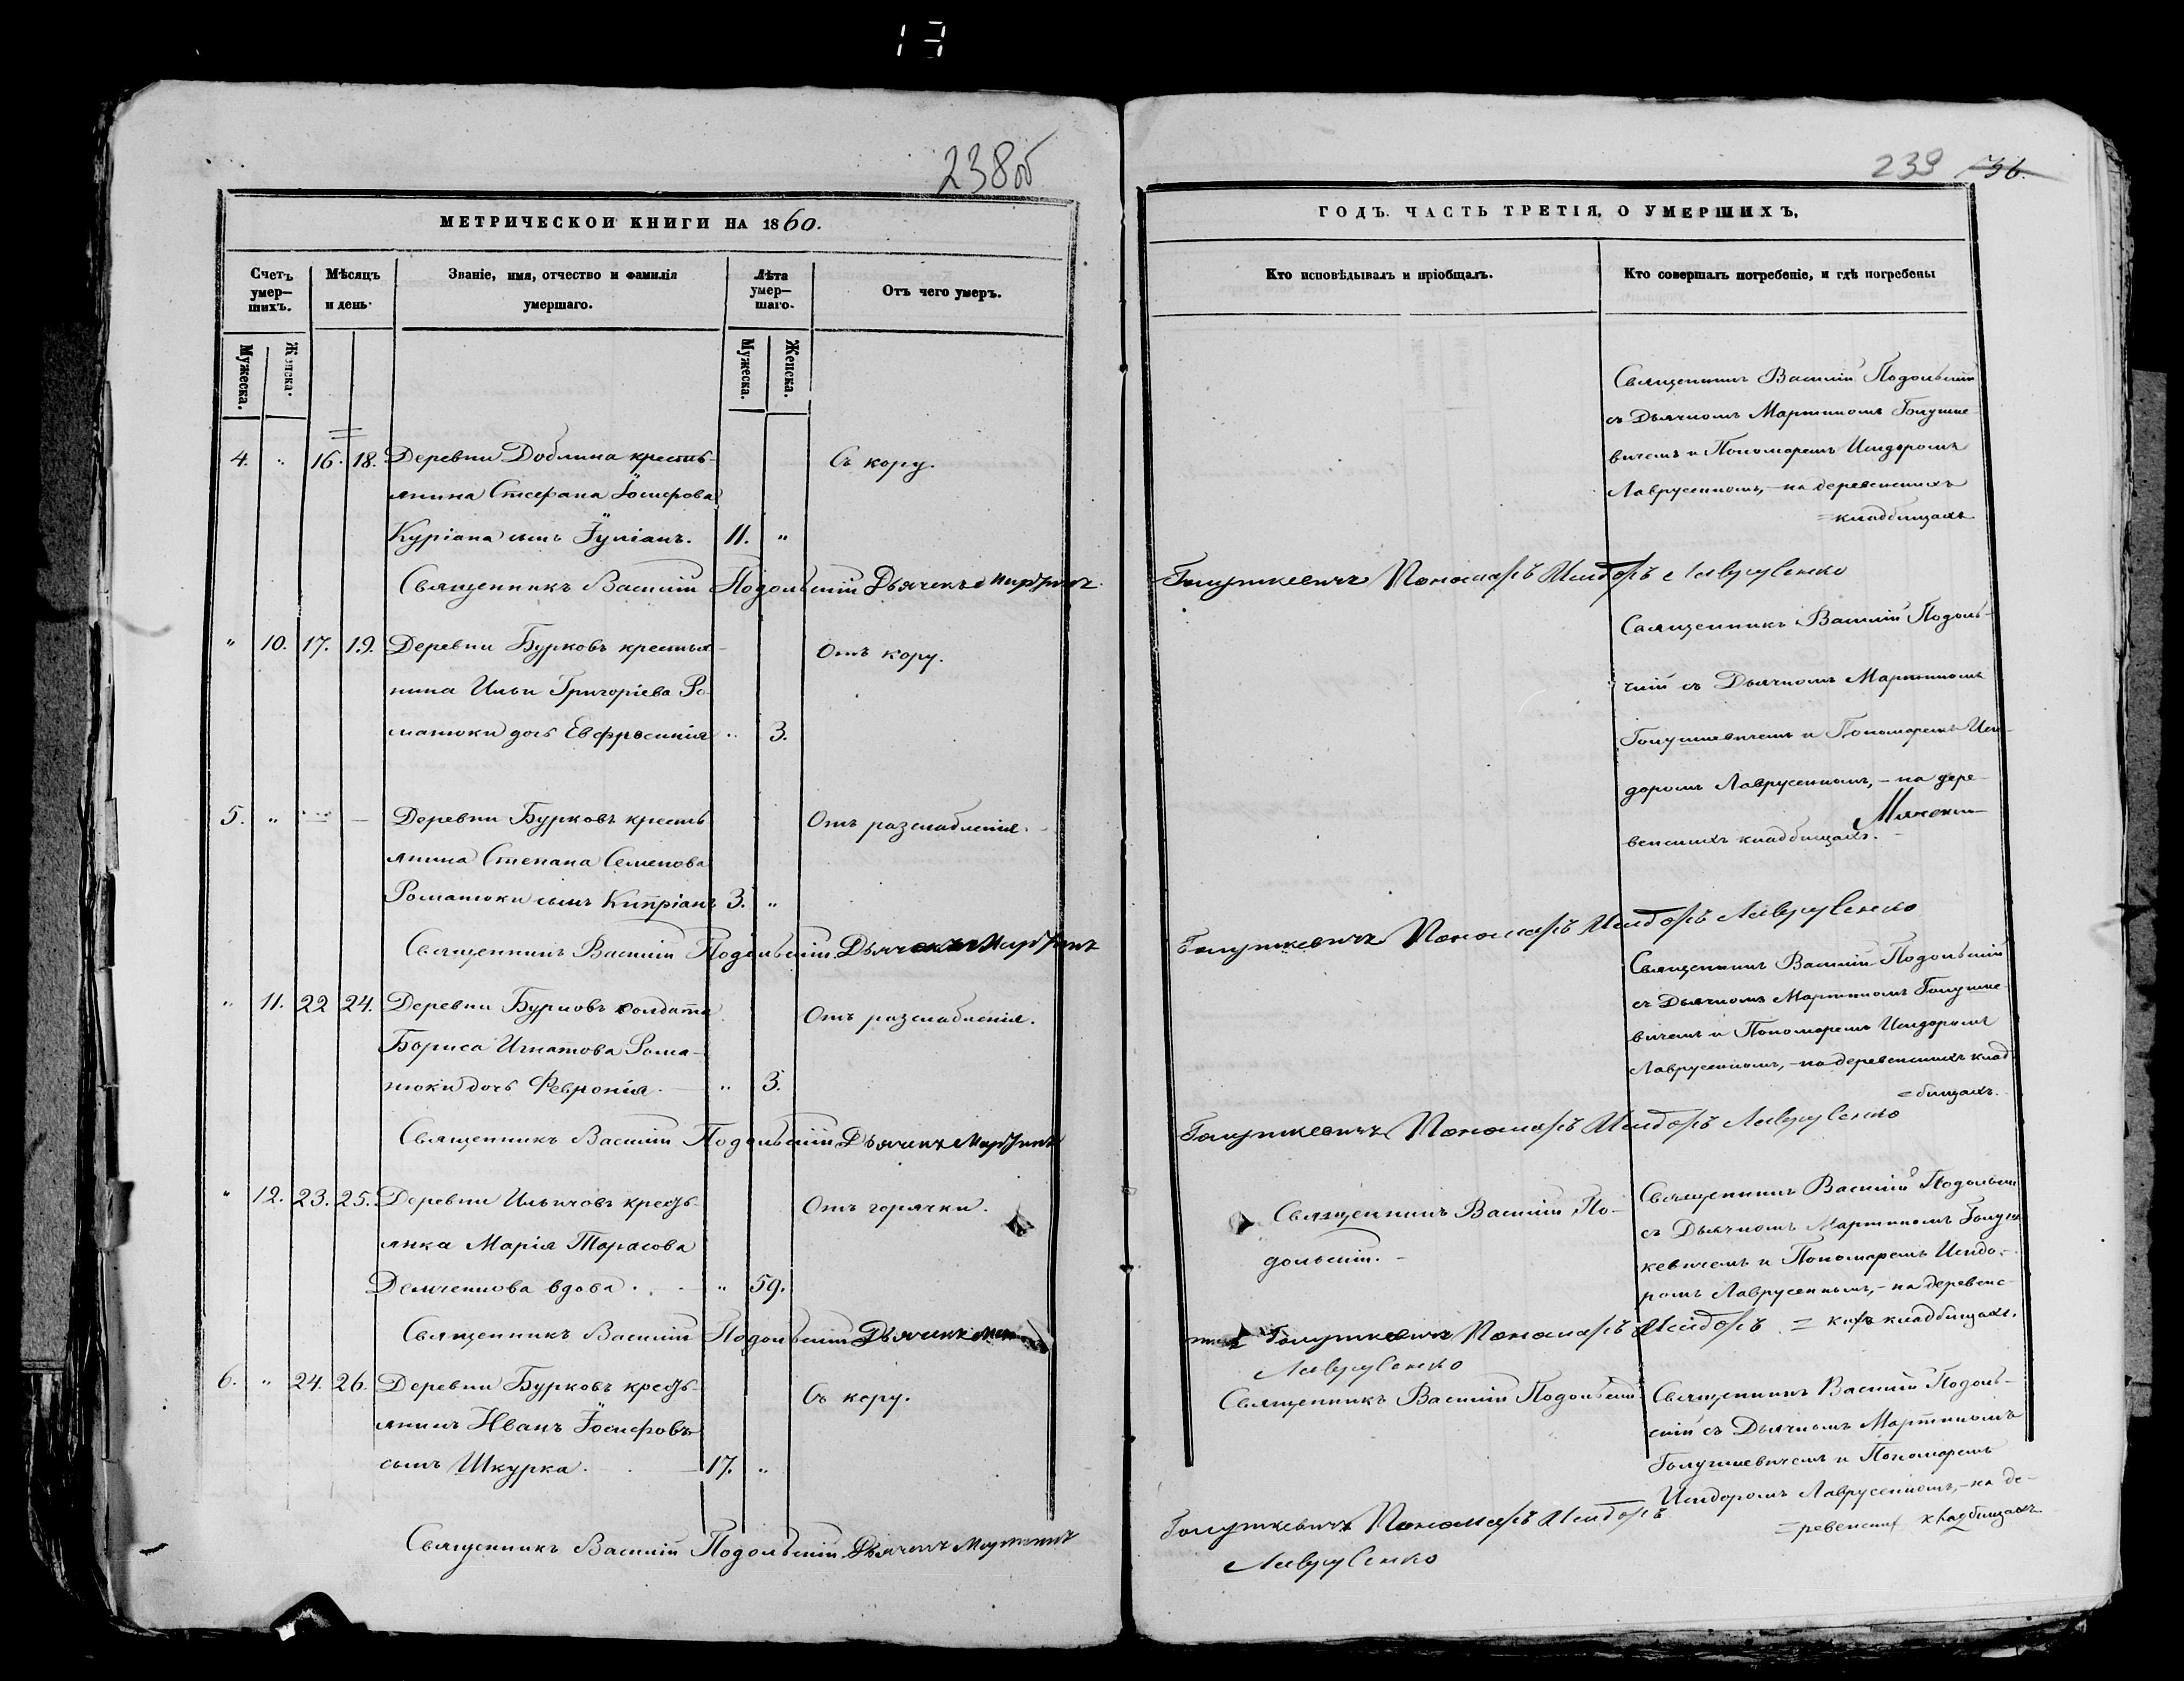 13
238об
МЕТРИЧЕСКОИ КНИГИ НА 1860.
Счетъ умер— шихъ.
Мѣсяцъ и день.
Званіе, имя, отчество и фамилія умершаго.
Лѣта умер— шаго.
Отъ чего умеръ.
Мужеска.
Женска.
Мужеска.
Женска.
4. " 16. 18. Деревни Доблина кресть- Съ кору.
янина Стефана Іосифова
Куріана сынъ Іуліанъ. 11. "
Священникъ Василій Подольскій Дьячекъ Мартинъ
" 10. 17. 19. Деревни Бурковъ крестья- Отъ кору.
нина Ильи Григоріева Ро-
матоки дочь Евфросинія " 3.
5. " — — Деревни Бурковъ кресть Отъ разслабленія.
янина Степана Семенова
Роматоки сынъ Кипріанъ 3. "
Священникъ Василій Подольскій Дьячекъ Мартинъ
" 11. 22 24. Деревни Бурковъ солдата Отъ разслабленія.
Бориса Игнатова Рома-
токи дочь Февронія. " 3.
Священникъ Василій Подольскій Дьячекъ Мартинъ
" 12. 23. 25. Деревни Ильичовъ кресть- Отъ горячки.
янка Марія Тарасова
Демченкова вдова. " 59.
Священникъ Василій Подольскій Дьячекъ
6. " 24. 26. Деревни Бурковъ кресть- Съ кору.
янинъ Иванъ Іосифовъ
сынъ Шкурка. 17. "
Священникъ Василій Подольскій Дьячекъ Мартинъ
239 736.
ГОДЪ. ЧАСТЬ ТРЕТІЯ, О УМЕРШИХЪ,
Кто исповѣдывалъ и пріобщалъ.
Кто совершалъ погребеніе, и гдѣ погребены
Священникъ Василій Подольскій
съ Дьячкомъ Мартиномъ Голушке
вичемъ и Пономаремъ Исидоромъ
Лаврусенкомъ,—на деревенскихъ
=кладбищахъ
Голушкевичъ Пономарь Исидоръ Лаврусенко
Священникъ Василій Подоль-
скій съ Дьячкомъ Мартиномъ
Голушкевичемъ и Пономаремъ Иси-
доромъ Лаврусенкомъ,—на дере-
венскихъ кладбищахъ.
Голушкевичъ Пономарь Исидоръ Лаврусенко
Священникъ Василій Подольскій
съ Дьячкомъ Мартиномъ Голушке
вичемъ и Пономаремъ Исидоромъ
Лаврусенкомъ,—на деревенскихъ клад
=бищахъ.
Голушкевичъ Пономарь Исидоръ Лаврусенко
Священникъ Василій По-
дольскій.
Священникъ Василій Подольскій
съ Дьячкомъ Мартиномъ Голуш
кевичемъ и Пономаремъ Исидо-
ромъ Лаврусенкомъ,—на деревенс-
= кихъ кладбищахъ.
Голушкевичъ Пономарь Исидоръ
Лаврусенко
Священникъ Василій Подольскій
Священникъ Василій Подоль-
скій съ Дьячкомъ Мартиномъ
Голушкевичемъ и Пономаремъ
Исидоромъ Лаврусенкомъ,—на де-
=ревенских кладбищахъ
Голушкевичъ Пономарь Исидоръ
Лаврусенко